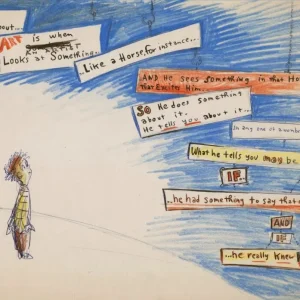 bout...
Art is when
an artist
Looks at Something..
..Like a Horse, for instance...
AND He sees something in that Ho
that Excites Him...
So He does something
about it.
He tells you about it...
In any one of a number
What he tells you may be
IF...
...he had something to say that
AND
IF
...he really knew